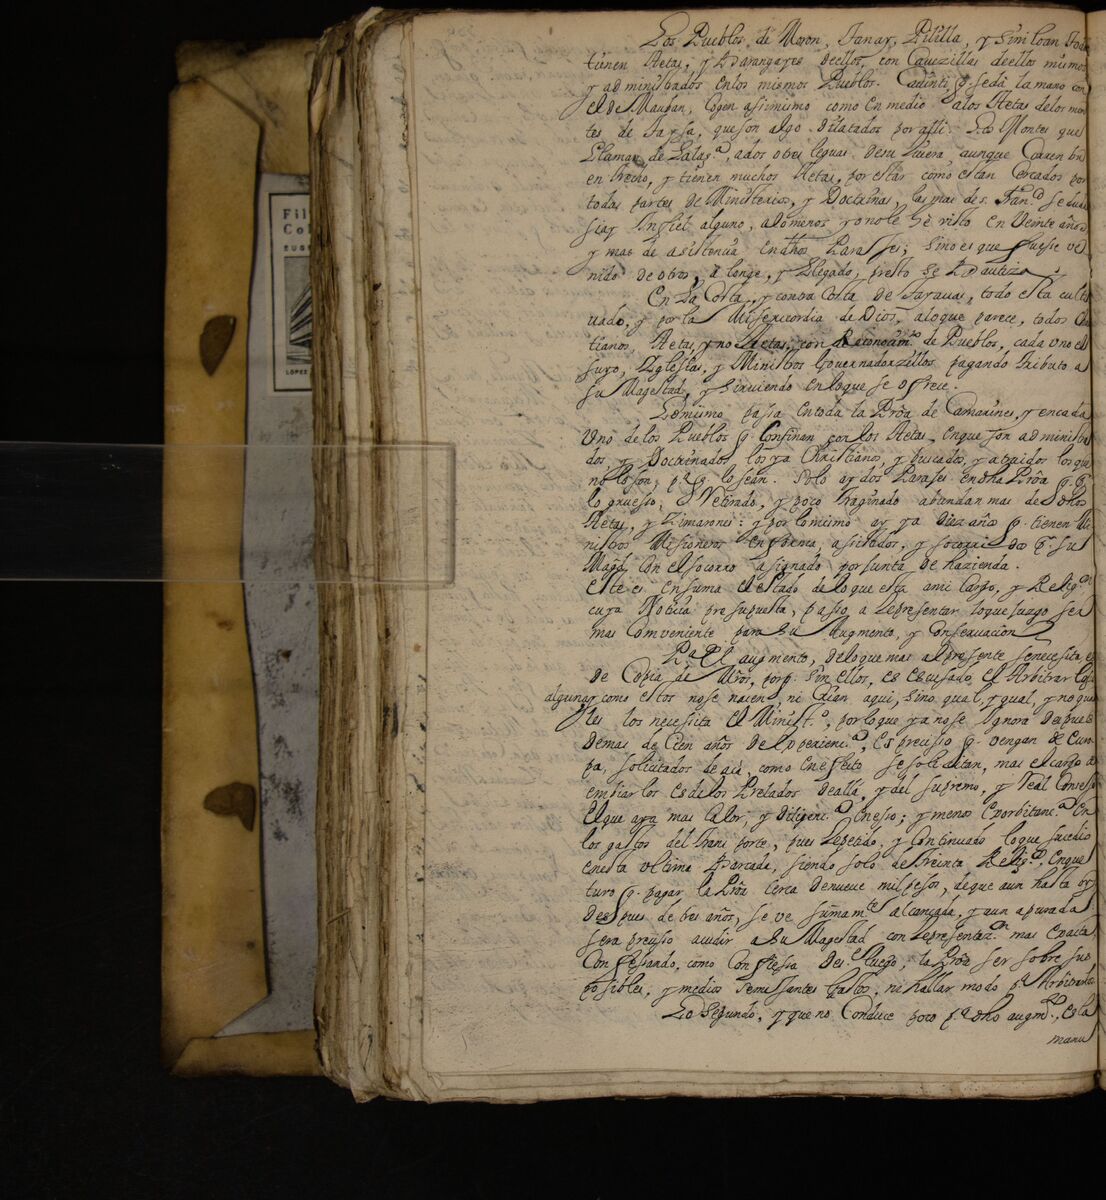 Los Pueblos de Moron, Tanay, Pililla, y Siniloan todos
tienen Aetas, y Barangayes deellos, con Cavezillas deellos mismos
y administrados enlos mismos Pueblos. Cavinti q. se dá la mano con
el de Mauban, cogen asimismo como en medio alos Aetas delos mon
tes de Tayba, queson algo dilatados por alli. Los Montes que
llaman de Lalag.ª, ados otres leguas
en trecho, y tienen muchos Aetas, por estár como estan cercados por
todas partes de Ministerios, y Doctrinas, las mas de S. Fran.co
Infiel alguno, alomenos yo nolo hé visto en veinte años
y mas de asistencia endhos Parajes; sino es que fuese ve
nido de otros, á longe, y llegado, presto se Bautiza.
En la Costa, y contra Costa de Tayauas, todo está culti
uado, y por la Misericordia de Dios, aloque parece, todos Chris
tianos, Aetas, y no Aetas, con Reconocim.to de Pueblos, cada uno el
suyo, Iglesias, y Ministros Governadorzillos pagando tributo a
su Magestad, y sirviendo enloque se ofrece.
Lo mismo pasa entoda la Proâ de Camarines, y encada
uno delos Pueblos q. confinan con los Aetas, enque son administra
dos, y Doctrinados los ya Christianos, y buscados, y atraidos los que
nolo son, p.ª q. lo sean. Solo ay dos Parajes endha Proâ q. p.r
lo grueso, Retirado, y poco traginado abundan mas de dhos
Aetas, y Zimarones: y por lomismo ay ya diez años q. tienen Mi
nistros Misioneros enforma, asistidos, y socorridos p.r su
Magd. con el socorro asignado por Junta de hazienda.
Este es ensuma el estado deloque está ami Cargo, y Relig.on
cuya Noticia presupuesta, paso a representar loque juzgo ser
mas conveniente para su Augmento, y Conservacion
P.ª el augmento, deloque mas alpresente senecesita, es
de Copia de Mrôs, porq. sin ellos, es escusado el Arbitrar Cosa
alguna; y como estos nose nacen, ni crian aqui, sino qual, y qual, y no qua
les los necesita el Minist.º, por loque ya nose ignora despues
demas de Cien años de experienc.ª, Es preciso q. vengan de Euro
pa, solicitados de acá, como en efecto se solicitan, mas el cargo de
embiarlos es delos Prelados de allá, y del supremo, y Real Consejo
El que aya mas calor, y diligenc.ª eneso; y menos exorbitanc.ª en
los gastos del transporte, pues repetido, y continuado loque sucedio
enesta ultima Barcada, siendo solo de treinta Relig.os, enque
tuvo q. pagar la Proâ cerca denueve mil pesos, deque aun hasta oy
despues de tres años, se ve sumam.te alcanzada, y aun apurada
sera preciso acudir a su Magestad con representaz.on mas exacta,
Confesando, como confiesa desde luego, la Proâ ser sobre sus
posibles, y medios semejantes gastos, ni hallar modo p.ª Arbitrarlos
Lo segundo, y que no conduce poco p.ª dho augm.to, es la
manu